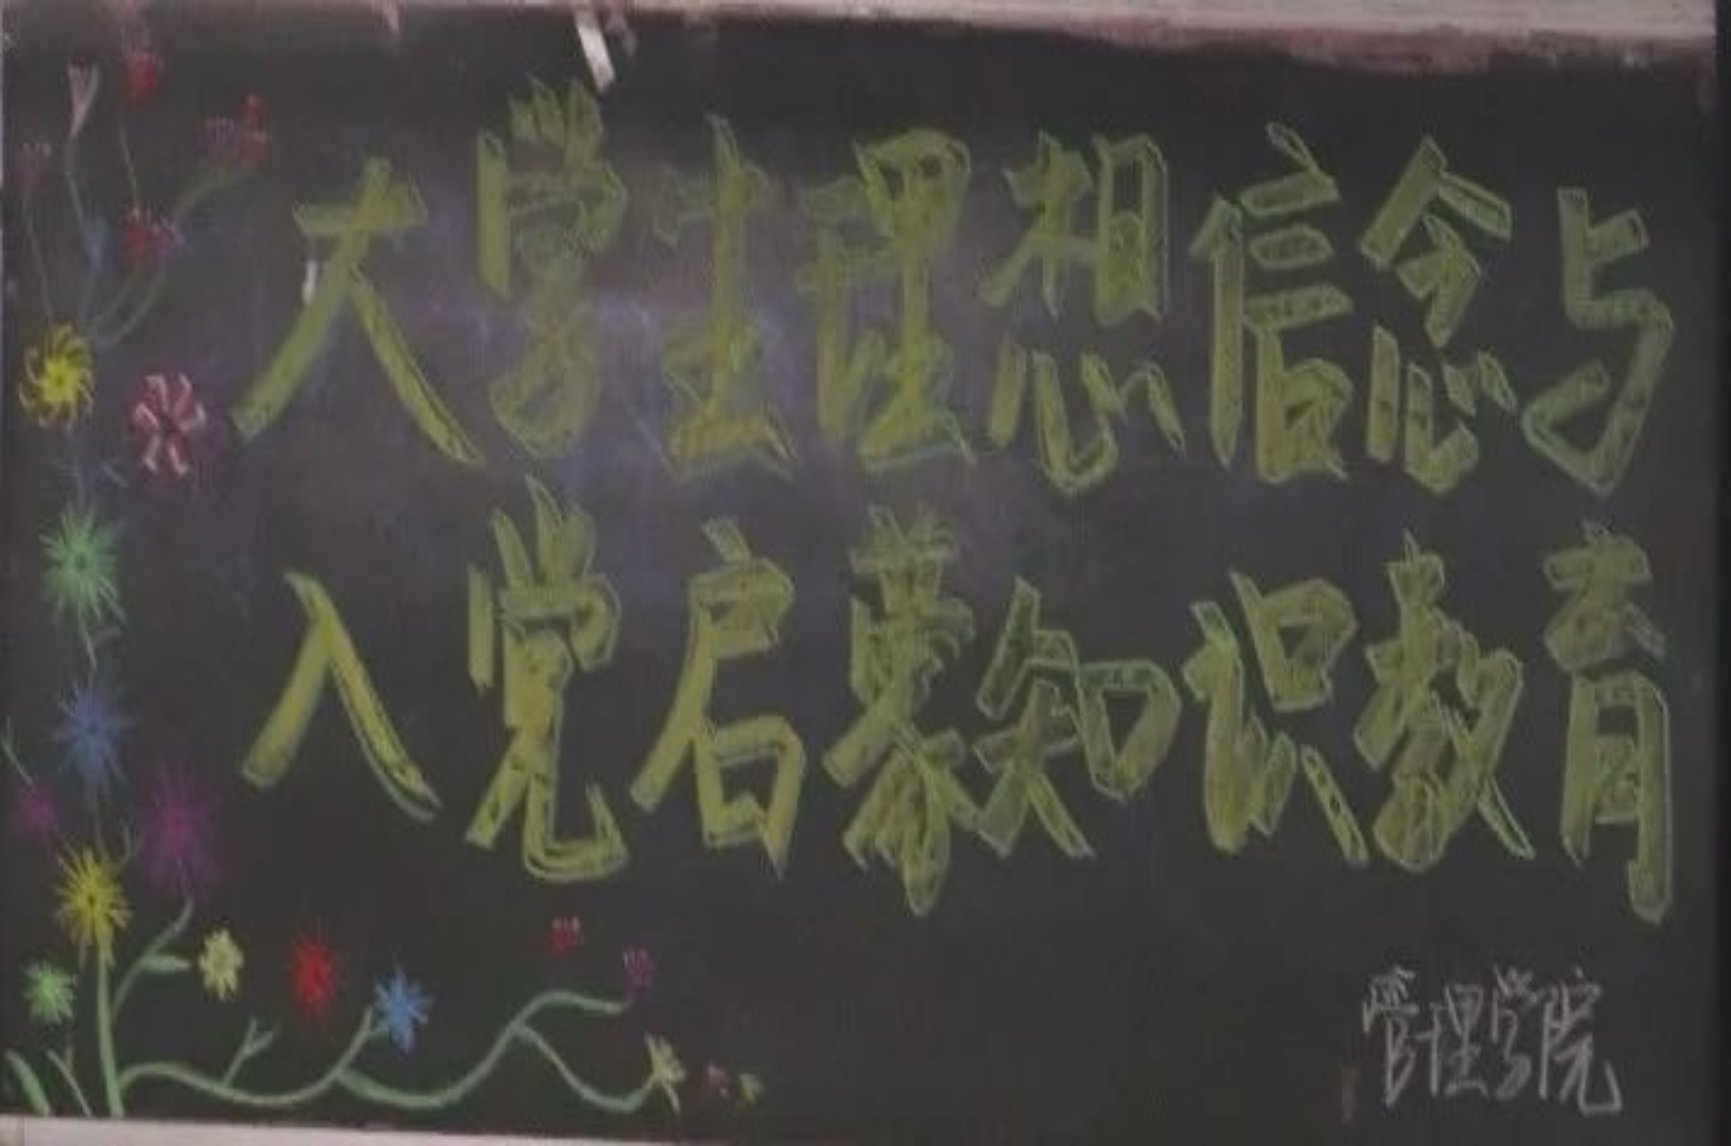 大学生理想信念与
入党启蒙知识教育
管理学院